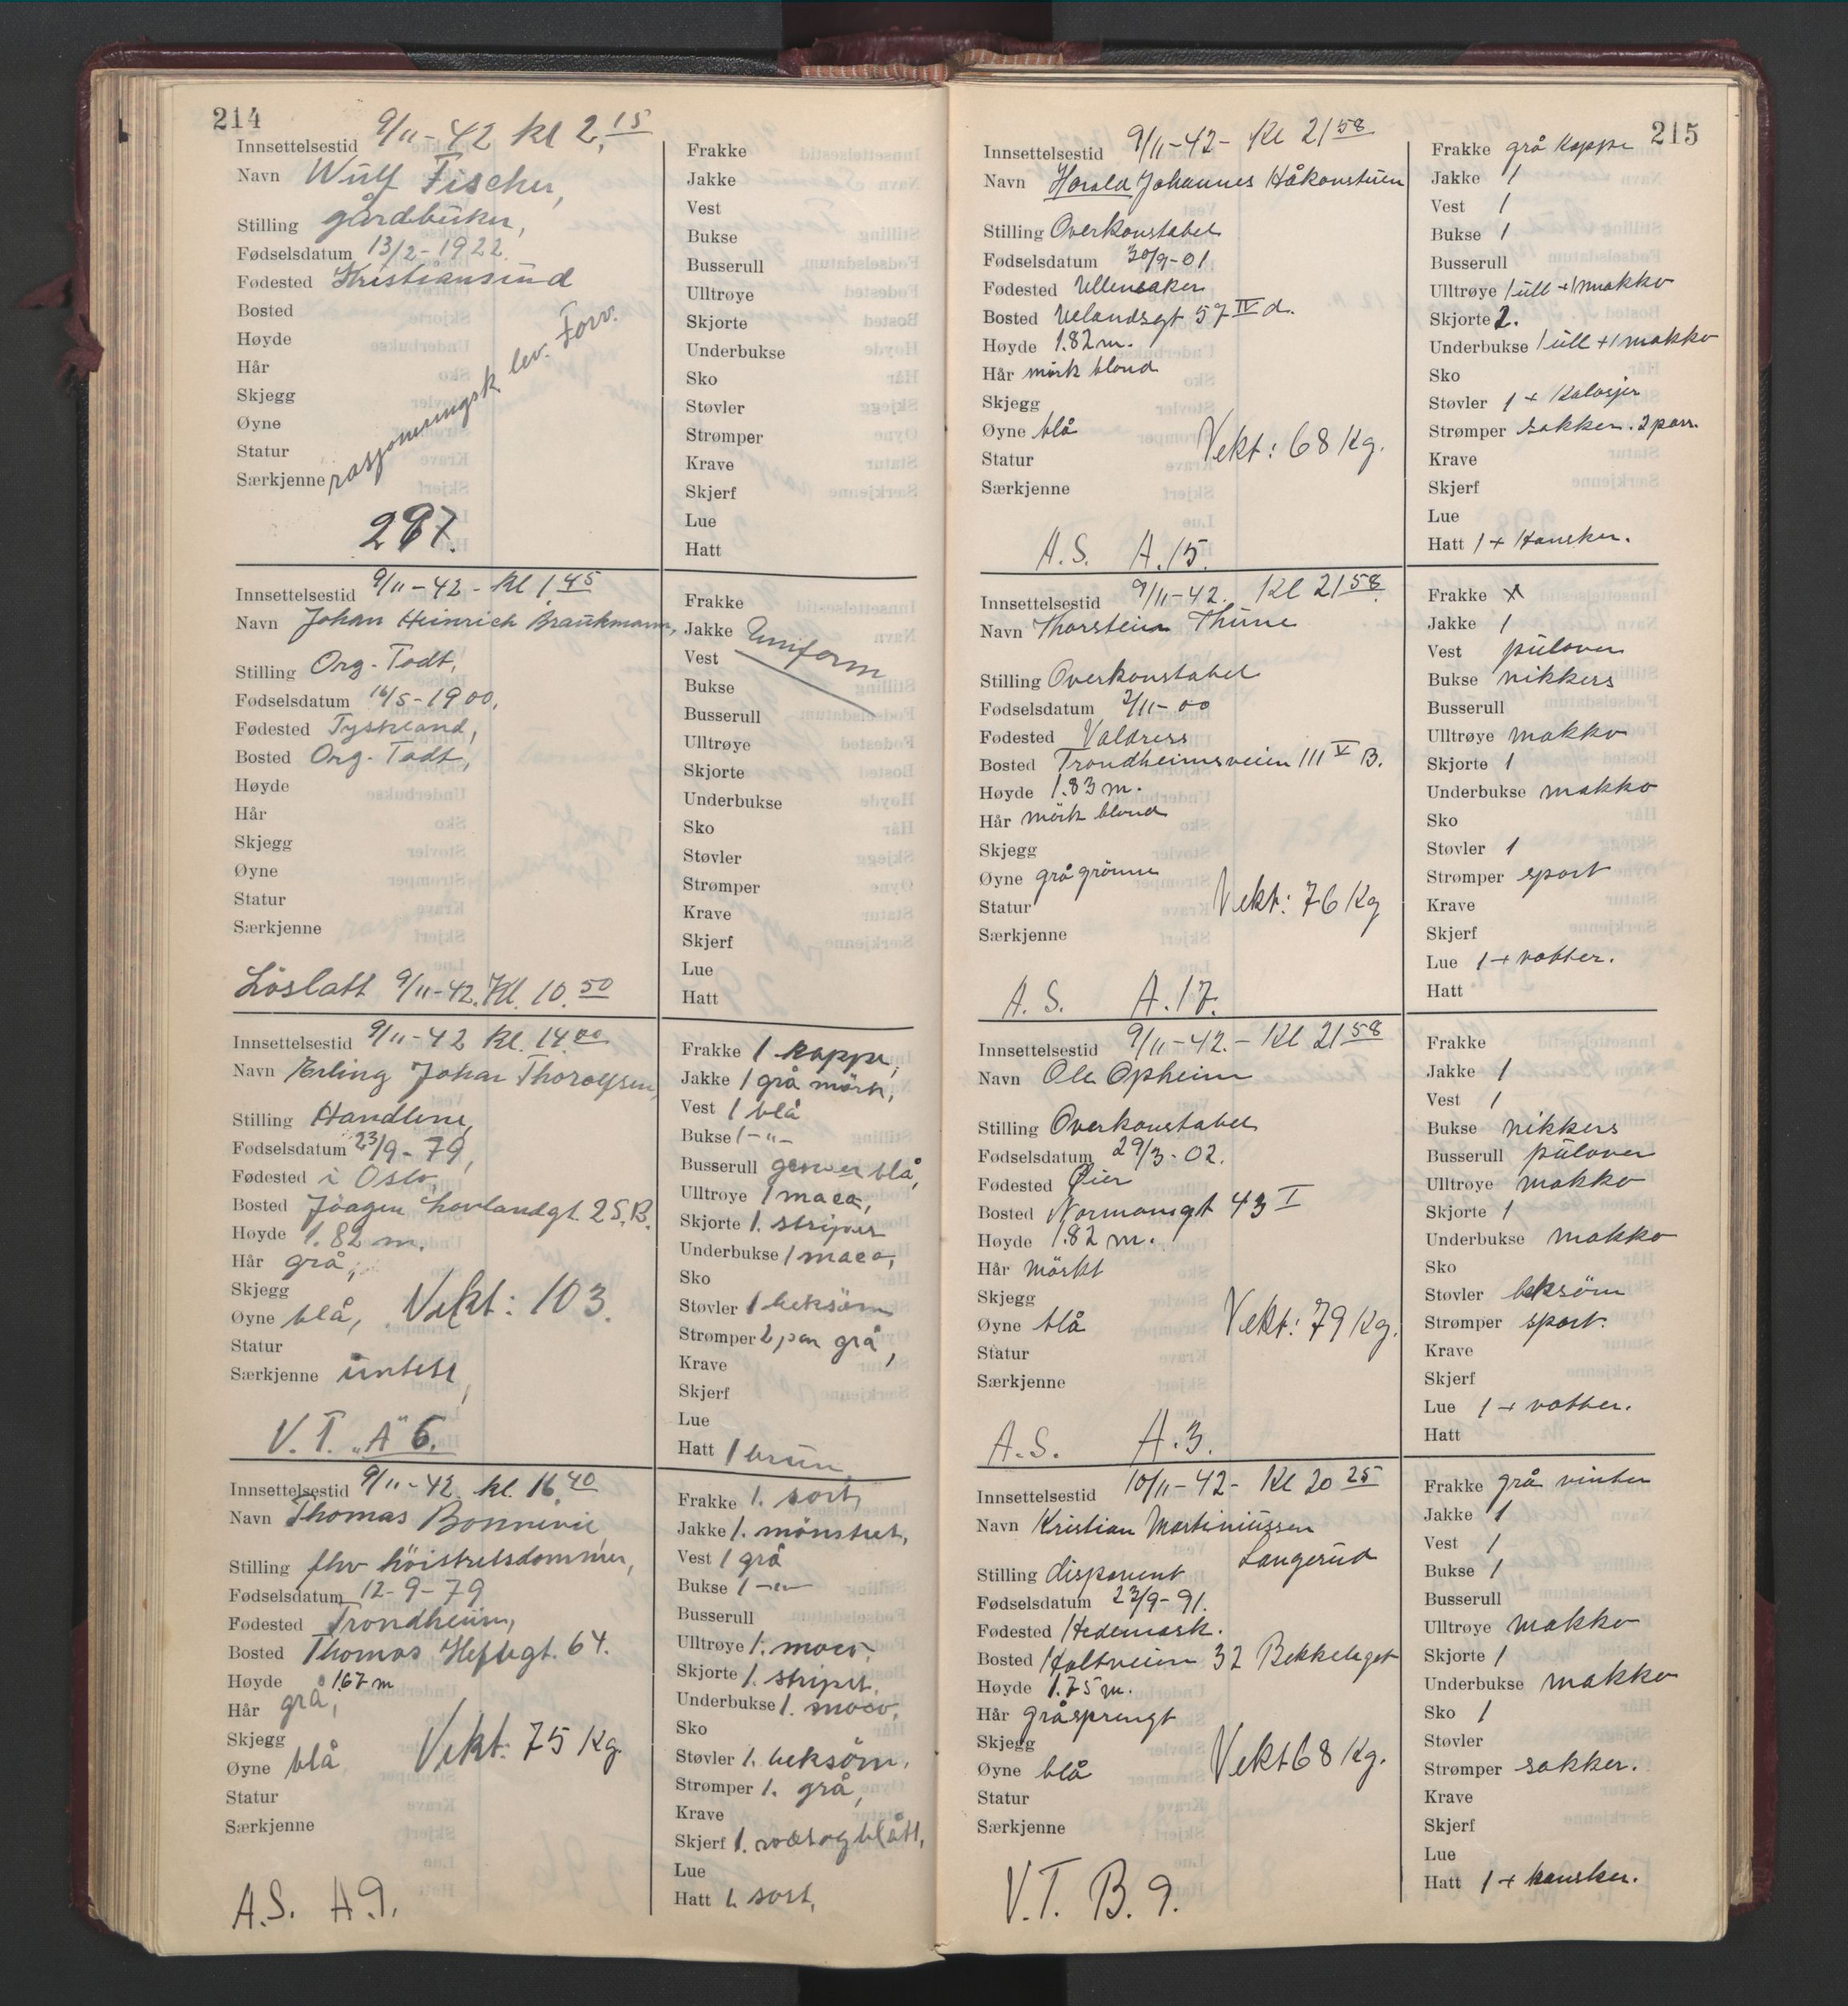 214
Innsettelsestid 9/11-42 kl 2,15
Navn Wulf Fischer,
Stilling gårdbruker,
Fødselsdatum 13/2-1922
Fødested Kristiansund
Bosted
Høyde
Hår
Skjegg
Øyne
Statur
Særkjenne
rasjoneringsk. lev. Forv.
287.
Frakke
Jakke
Vest
Bukse
Busserull
Ulltrøye
Skjorte
Underbukse
Sko
Støvler
Strømper
Krave
Skjerf
Lue
Hatt
Innsettelsestid 9/11-42 - Kl 1,45
Navn Johan Heinrich Braukmann,
Stilling Org. Todt,
Fødselsdatum 16/5-1900,
Fødested Tyskland,
Bosted Org. Todt,
Høyde
Hår
Skjegg
Øyne
Statur
Særkjenne
Løslatt 9/11-42. Kl. 10.50
Frakke
Jakke Uniform
Vest
Bukse
Busserull
Ulltrøye
Skjorte
Underbukse
Sko
Støvler
Strømper
Krave
Skjerf
Lue
Hatt
Innsettelsestid 9/11-42 kl. 14.00
Navn Erling Johan Thorolfsen,
Stilling Handlene,
Fødselsdatum 23/9-79,
Fødested i Oslo,
Bosted Jøagen Løvlandgt. 2 S.B.
Høyde 1.82 m.
Hår grå,
Skjegg
Øyne blå, Vekt: 103.
Statur
Særkjenne intet,
V.T. "A" 6.
Frakke 1 kappe,
Jakke 1 grå mörk,
Vest 1 blå
Bukse 1 -"-
Busserull genser blå,
Ulltrøye 1 maco,
Skjorte 1. stripet
Underbukse 1 maco,
Sko
Støvler 1 beksöm
Strømper 2 par grå,
Krave
Skjerf
Lue
Hatt 1 brun
Innsettelsestid 9/11-42. kl. 16.40
Navn Thomas Bonnevie
Stilling fhv höistretsdommer,
Fødselsdatum 12-9-79
Fødested Trondheim,
Bosted Thomas Heftegt. 64.
Høyde 1.67 m
Hår grå,
Skjegg
Øyne blå Vekt: 75 Kg
Statur
Særkjenne
A.S. A.9.
Frakke 1. sort,
Jakke 1. mönstret,
Vest 1 grå
Bukse 1 -"-
Busserull
Ulltrøye 1. maco,
Skjorte 1. stripet,
Underbukse 1. maco,
Sko
Støvler 1. beksöm,
Strømper 1. grå,
Krave
Skjerf 1. rød og blått,
Lue
Hatt 1. sort,
215
Innsettelsestid 9/11-42- Kl 21 58
Navn Harald Johannes Håkonstuen
Stilling Overkonstabel
Fødselsdatum 30/9-01
Fødested Ullensaker
Bosted Uelandsgt 57 IV d.
Høyde 1.82 m.
Hår mörk blond
Skjegg
Øyne blå
Vekt: 68 Kg.
Statur
Særkjenne
A.S. A.15.
Frakke grå Kappe
Jakke 1
Vest 1
Bukse 1
Busserull
Ulltrøye 1 ull + 1 makko
Skjorte 2.
Underbukse 1 ull + 1 makko
Sko
Støvler 1 + Kalosjer
Strømper sokker. 2 par.
Krave
Skjerf
Lue
Hatt 1 + Hansker.
Innsettelsestid 9/11-42. Kl 21 58
Navn Thorstein Thune
Stilling Overkonstabel
Fødselsdatum 2/11-00
Fødested Valdress
Bosted Trondheimsveien 111 V B.
Høyde 1.83 m.
Hår mörk blond
Skjegg
Øyne grå grönne
Statur Vekt: 76 Kg
Særkjenne
A.S. A.17.
Frakke x
Jakke 1
Vest pulover
Bukse nikkers
Busserull
Ulltrøye makko
Skjorte 1
Underbukse makko
Sko
Støvler 1
Strømper sport
Krave
Skjerf
Lue 1 + votter.
Hatt
Innsettelsestid 9/11-42.- Kl 21 58
Navn Ole Opheim
Stilling Overkonstabel
Fødselsdatum 29/3-02.
Fødested Øier
Bosted Normannsgt 43 I
Høyde 1.82 m.
Hår mörkt
Skjegg
Øyne blå Vekt: 79 Kg.
Statur
Særkjenne
A.S. A.3.
Frakke
Jakke 1
Vest 1
Bukse nikkers
Busserull pulover
Ulltrøye makko
Skjorte 1
Underbukse makko
Sko
Støvler beksöm
Strømper sport.
Krave
Skjerf
Lue 1 + votter.
Hatt
Innsettelsestid 10/11-42- Kl 20 25
Navn Kristian Martiniussen
Langerud
Stilling disponent
Fødselsdatum 23/9-91.
Fødested Hedemark.
Bosted Holtveien 32 Bekkelaget
Høyde 1.75 m.
Hår gråsprengt
Skjegg
Øyne blå Vekt 68 Kg.
Statur
Særkjenne
V.T. B.9.
Frakke grå vinter
Jakke 1
Vest 1
Bukse 1
Busserull
Ulltrøye makko
Skjorte 1
Underbukse makko
Sko 1
Støvler
Strømper sokker.
Krave
Skjerf
Lue
Hatt 1 + hansker.